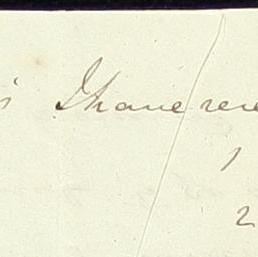 I have rece
1
2